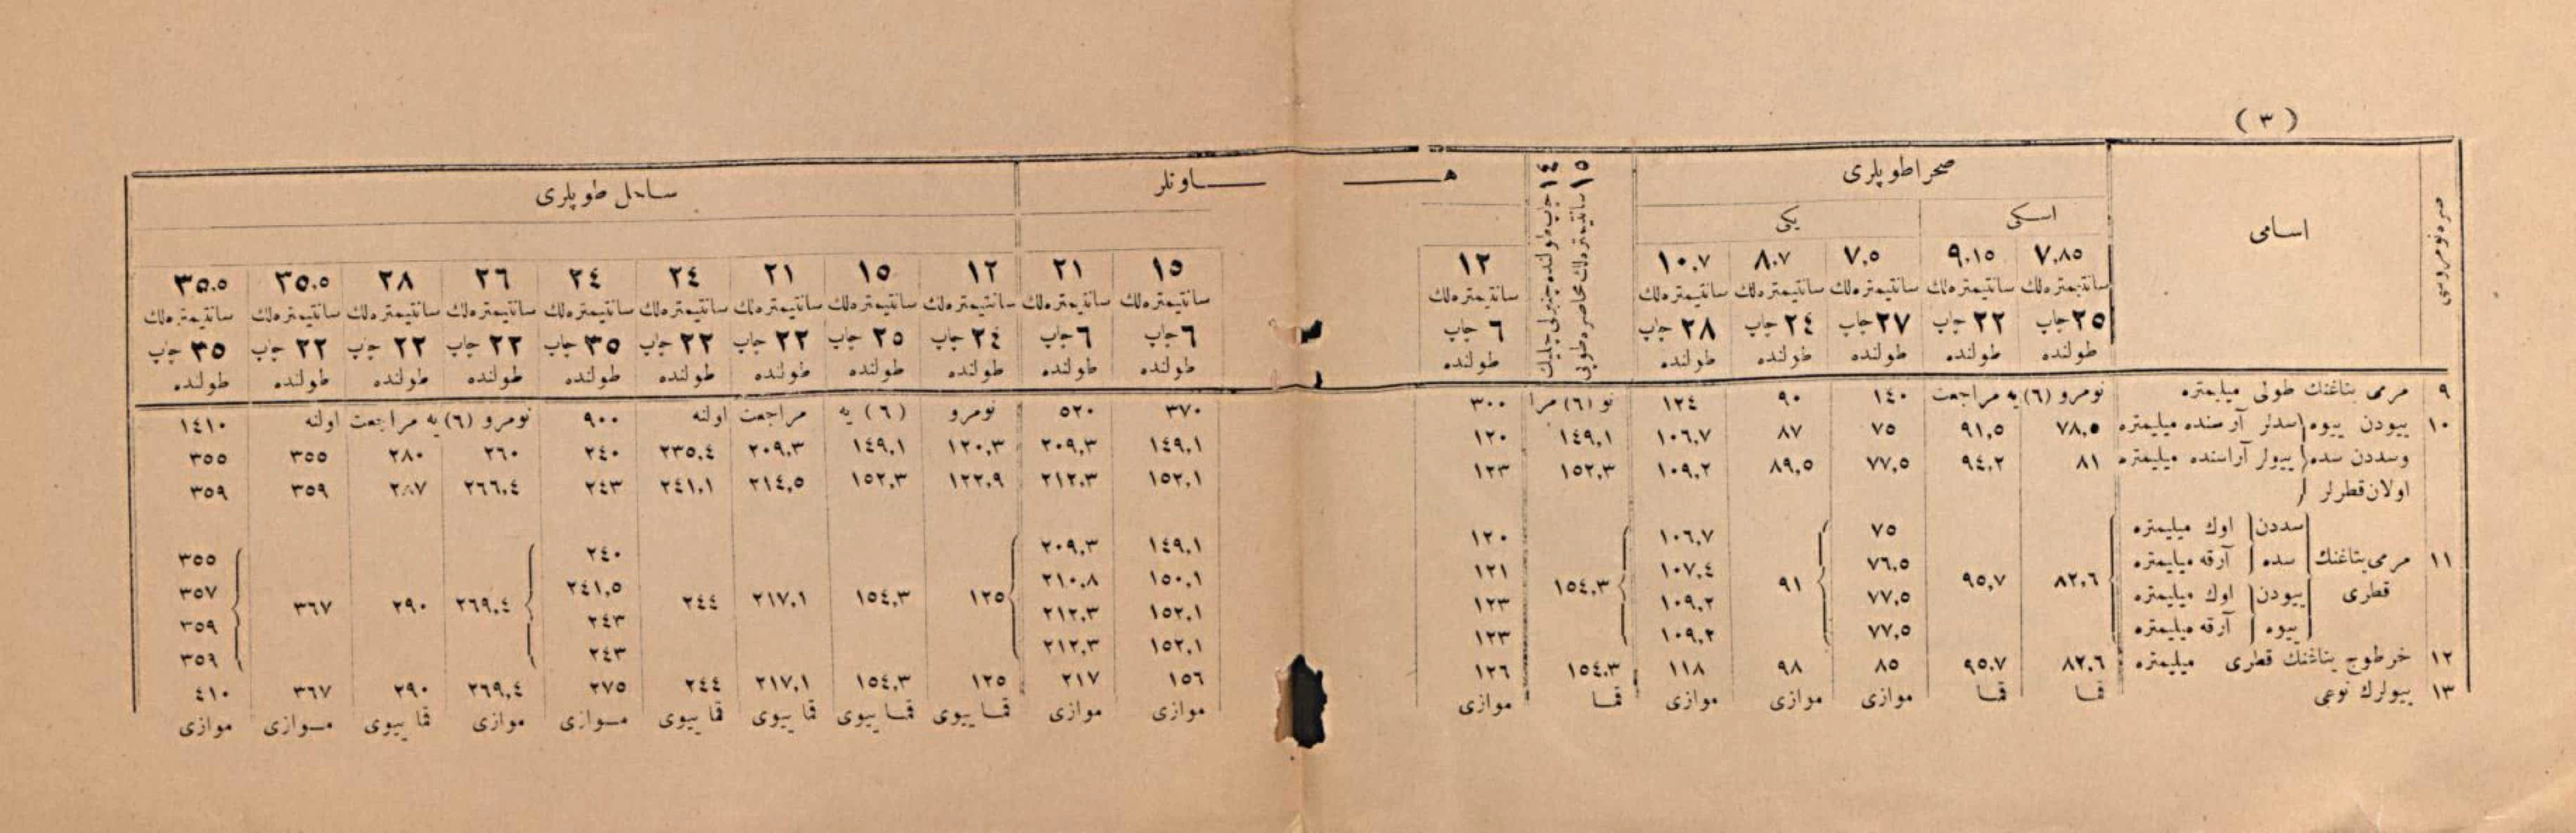 ( ٣ )
صره نومروسی
اسامی
صحرا طوپلری
اسکی
یکی
١٥ سانتیمتره‌لك محاصره طوپی
١٤ چاپ طولنده چنبرلی چلیك
هـــــاونلر
ساحل طوپلری
٧,٨٥ ٩,١٥ ٧,٥ ٨,٧ ١٠,٧ ١٢ ١٥ ٢١ ١٢ ١٥ ٢١ ٢٤ ٢٤ ٢٦ ٢٨ ٣٥,٥ ٣٥,٥
سانتیمتره‌لك سانتیمتره‌لك سانتیمتره‌لك سانتیمتره‌لك سانتیمتره‌لك سانتیمتره‌لك سانتیمتره‌لك سانتیمتره‌لك سانتیمتره‌لك سانتیمتره‌لك سانتیمتره‌لك سانتیمتره‌لك سانتیمتره‌لك سانتیمتره‌لك سانتیمتره‌لك سانتیمتره‌لك سانتیمتره‌لك
٢٥ چاپ ٢٢ چاپ ٢٧ چاپ ٢٤ چاپ ٢٨ چاپ ٦ چاپ ٦ چاپ ٦ چاپ ٢٤ چاپ ٢٥ چاپ ٢٢ چاپ ٢٢ چاپ ٣٥ چاپ ٢٢ چاپ ٢٢ چاپ ٢٢ چاپ ٣٥ چاپ
طولنده طولنده طولنده طولنده طولنده طولنده طولنده طولنده طولنده طولنده طولنده طولنده طولنده طولنده طولنده طولنده طولنده
٩ مرمی یتاغنك طولی میلیمتره نومرو (٦) یه مراجعت ١٤٠ ٩٠ ١٢٤ نو (٦) مرا ٣٠٠ ٣٧٠ ٥٢٠ نومرو (٦) یه مراجعت اولنه ٩٠٠ نومرو (٦) یه مراجعت اولنه ١٤١٠
١٠ ییودن ییوه سدلر آرسنده میلیمتره ٧٨,٥ ٩١,٥ ٧٥ ٨٧ ١٠٦,٧ ١٤٩,١ ١٢٠ ١٤٩,١ ٢٠٩,٣ ١٢٠,٣ ١٤٩,١ ٢٠٩,٣ ٢٣٥,٤ ٢٤٠ ٢٦٠ ٢٨٠ ٣٥٥ ٣٥٥
وسددن سده ییولر آراسنده میلیمتره ٨١ ٩٤,٢ ٧٧,٥ ٨٩,٥ ١٠٩,٢ ١٥٢,٣ ١٢٣ ١٥٢,١ ٢١٢,٣ ١٢٢,٩ ١٥٢,٣ ٢١٤,٥ ٢٤١,١ ٢٤٣ ٢٦٦,٤ ٢٨٧ ٣٥٩ ٣٥٩
اولان قطرلر
سددن اوك میلیمتره ٧٥ ١٠٦,٧ ١٢٠ ١٤٩,١ ٢٠٩,٣ ٢٤٠ ٣٥٥
١١ مرمی یتاغنك سده آرقه میلیمتره ٧٦,٥ ١٠٧,٤ ١٢١ ١٥٠,١ ٢١٠,٨ ٢٤١,٥ ٣٥٧
٨٢,٦ ٩٥,٧ ٩١ ١٥٤,٣ ١٢٥ ١٥٤,٣ ٢١٧,١ ٢٤٤ ٢٦٩,٤ ٢٩٠ ٣٦٧
قطری ییودن اوك میلیمتره ٧٧,٥ ١٠٩,٢ ١٢٣ ١٥٢,١ ٢١٢,٣ ٢٤٣ ٣٥٩
ییوه آرقه میلیمتره ٧٧,٥ ١٠٩,٢ ١٢٣ ١٥٢,١ ٢١٢,٣ ٢٤٣ ٣٥٩
١٢ خرطوج یتاغنك قطری میلیمتره ٨٢,٦ ٩٥,٧ ٨٥ ٩٨ ١١٨ ١٥٤,٣ ١٢٦ ١٥٦ ٢١٧ ١٢٥ ١٥٤,٣ ٢١٧,١ ٢٤٤ ٢٧٥ ٢٦٩,٤ ٢٩٠ ٣٦٧ ٤١٠
١٣ ییولرك نوعی قما قما موازی موازی موازی قما موازی موازی موازی قما ییوی قما ییوی قما ییوی قما ییوی موازی موازی قما ییوی موازی موازی